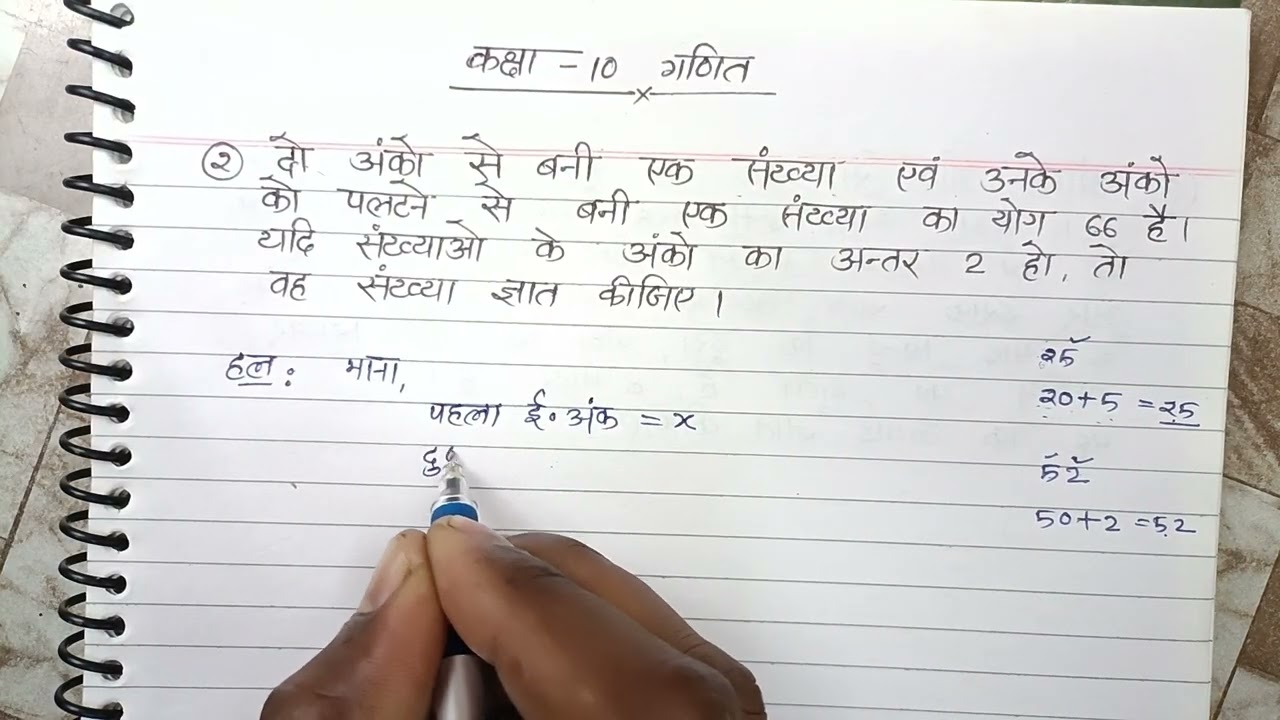 कक्षा - 10 गणित
२ दो अंको से बनी एक संख्या एवं उनके अंको
को पलटने से बनी एक संख्या का योग 66 है।
यदि संख्याओ के अंको का अन्तर 2 हो, तो
वह संख्या ज्ञात कीजिए।
हल: माना,
पहला ई॰ अंक = x
25
20+5 = 25
52
50+2 = 52